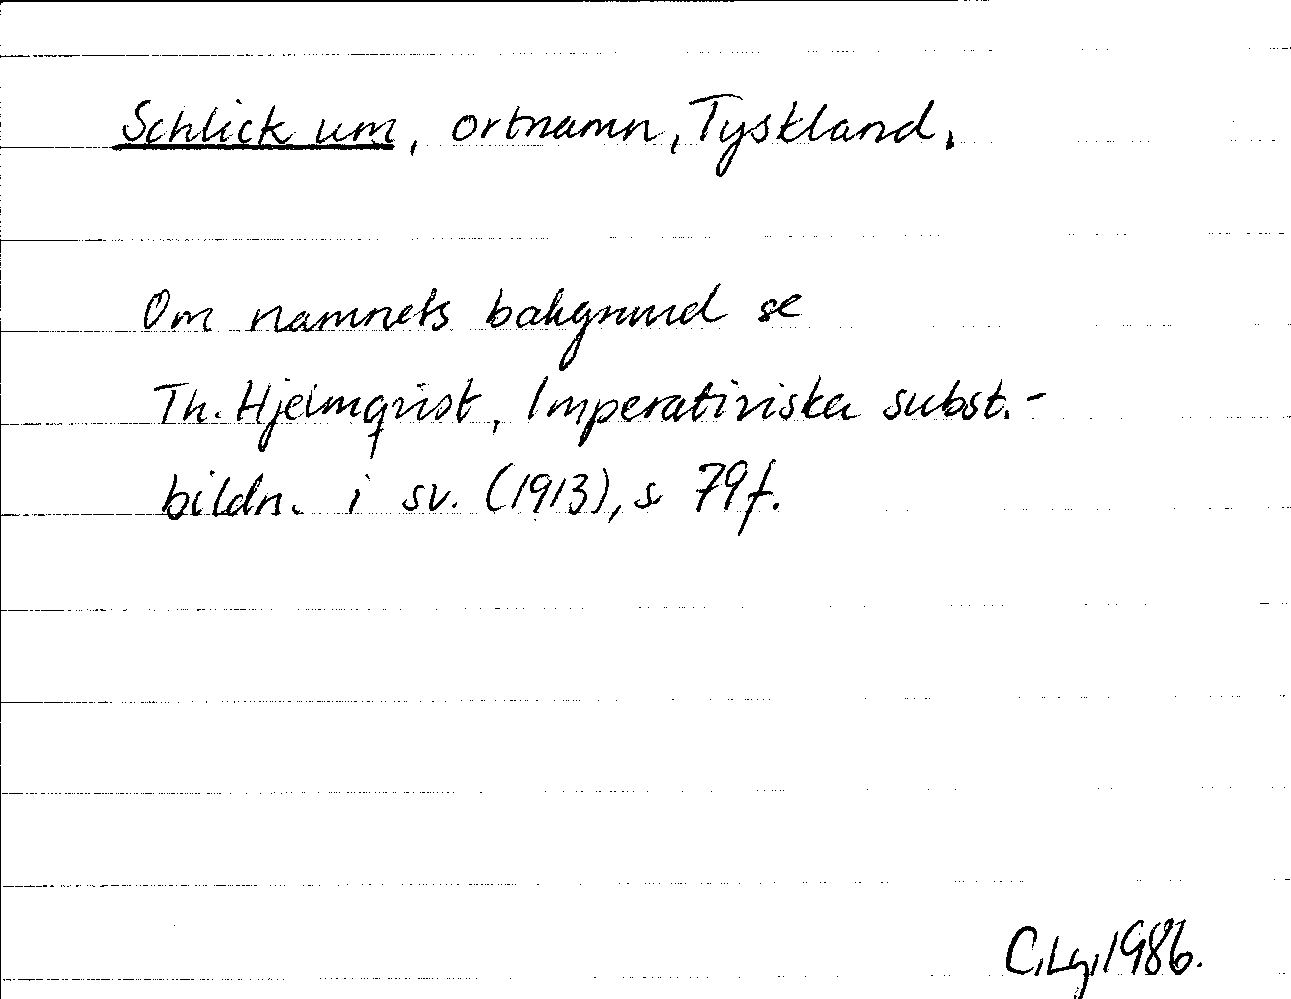 Schlick um, ortnamn, Tyskland.
Om namnets bakgrund se
Th. Hjelmqvist, Imperativiska subst.-
bildn. i sv. (1913), s 79f.
C.Lg,1986.